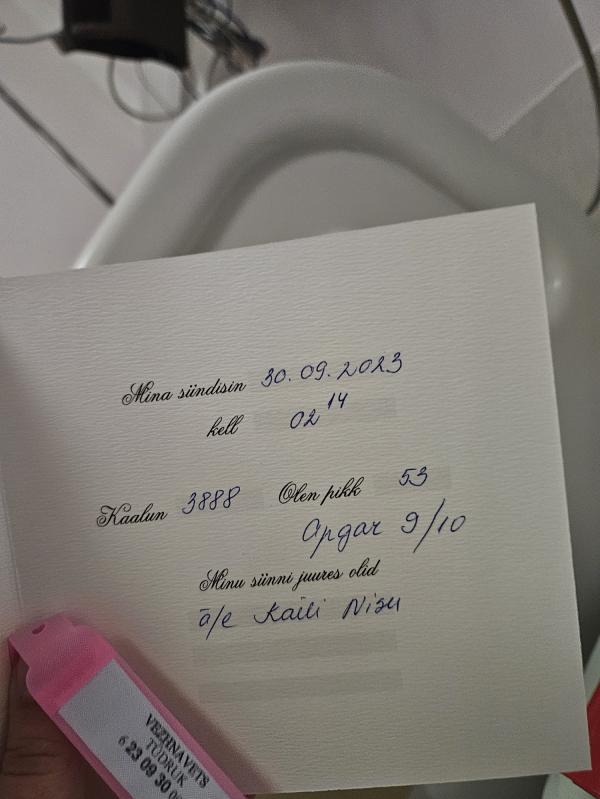 Mina sündisin 30.09.2023
kell 02 14
Kaalun 3888 Olen pikk 53
Apgar 9/10
Minu sünni juures olid
ä/e Kaili Nisu
VEZHNAVETS
TÜDRUK
23 09 30